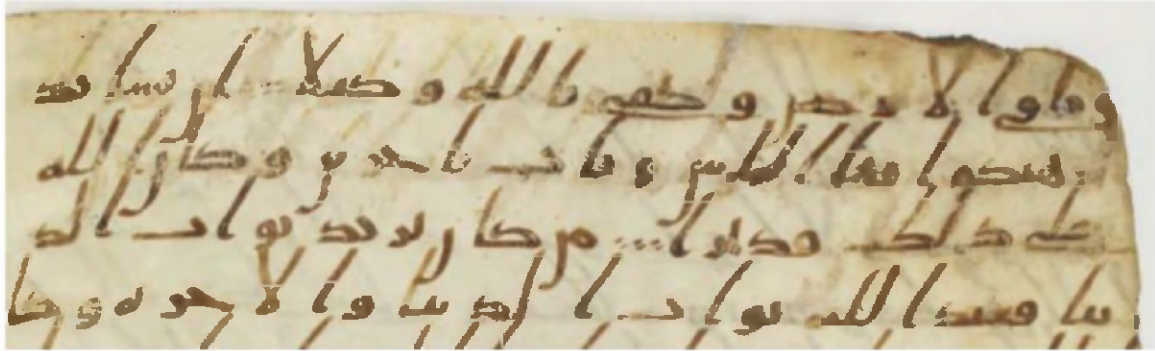 وما في الارض وكفى بالله وكيلا ان يشا يذ
هبكم ايها الناس ويات باخرين وكان الله
على ذلك قديرا من كان يريد ثواب الد
نيا فعند الله ثواب الدنيا والاخره وكا